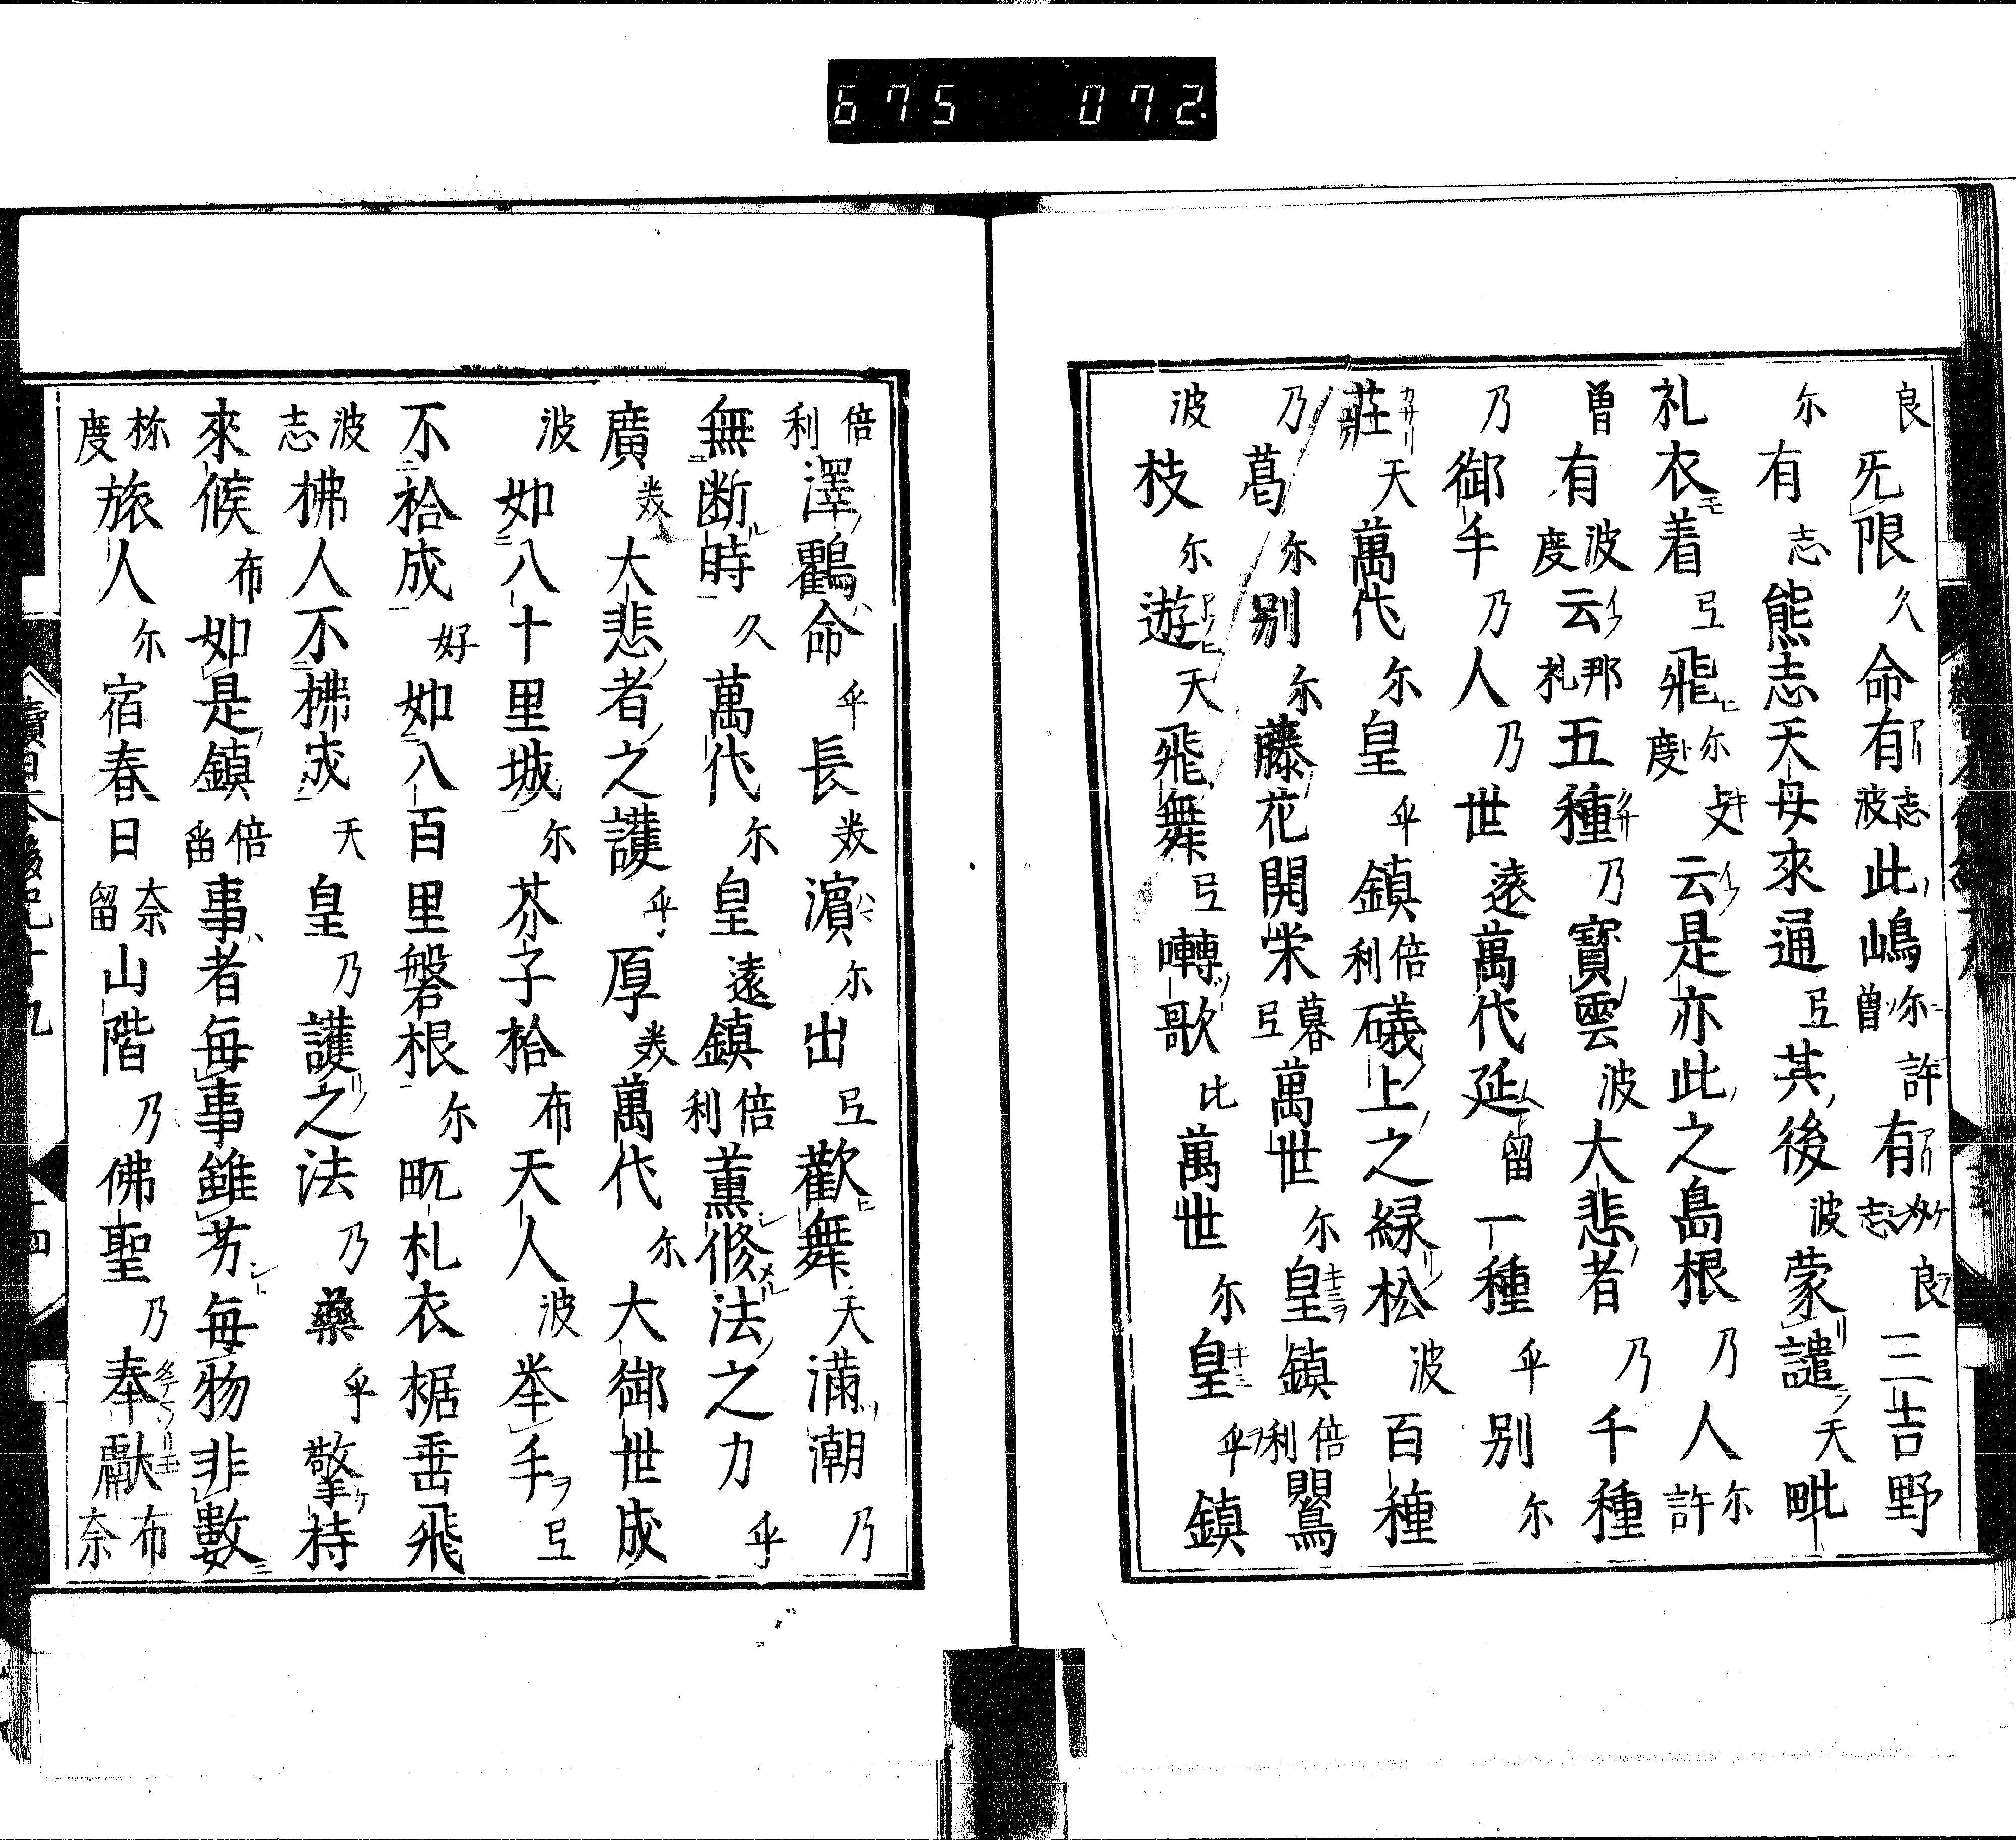 675 072.
良无限久命有志波此嶋尔曽許有介志良三吉野
尔有志熊志天母來通弖其後波蒙譴天毗
礼衣着弖飛尔度支云是亦此之島根乃人尔許
曽有波度云那礼五種乃寶雲波大悲者乃千種
乃御手乃人乃世遠萬代延留一種乎別尔
莊天萬代尔皇乎鎮倍利礒上之緑松波百種
乃葛尔別尔藤花開栄弖萬世尔皇鎮倍利鸎
波枝尔遊天飛舞弖囀歌比萬世尔皇乎鎮
倍利澤鸖命乎長美濱尔出弖歡舞天滿潮乃
無断時久萬代尔皇遠鎮倍利薫修法之力乎
廣美大悲者之護乎厚美萬代尔大御世成
波如八十里城尔芥子拾布天人波挙手弖
不拾成好如八百里磐根尔毗礼衣裾垂飛
波志拂人不拂成天皇乃護之法乃藥乎擎持
來候布如是鎮倍留事者毎事雖芳毎物非數
祢度旅人尔宿春日奈留山階乃佛聖乃奉獻布奈